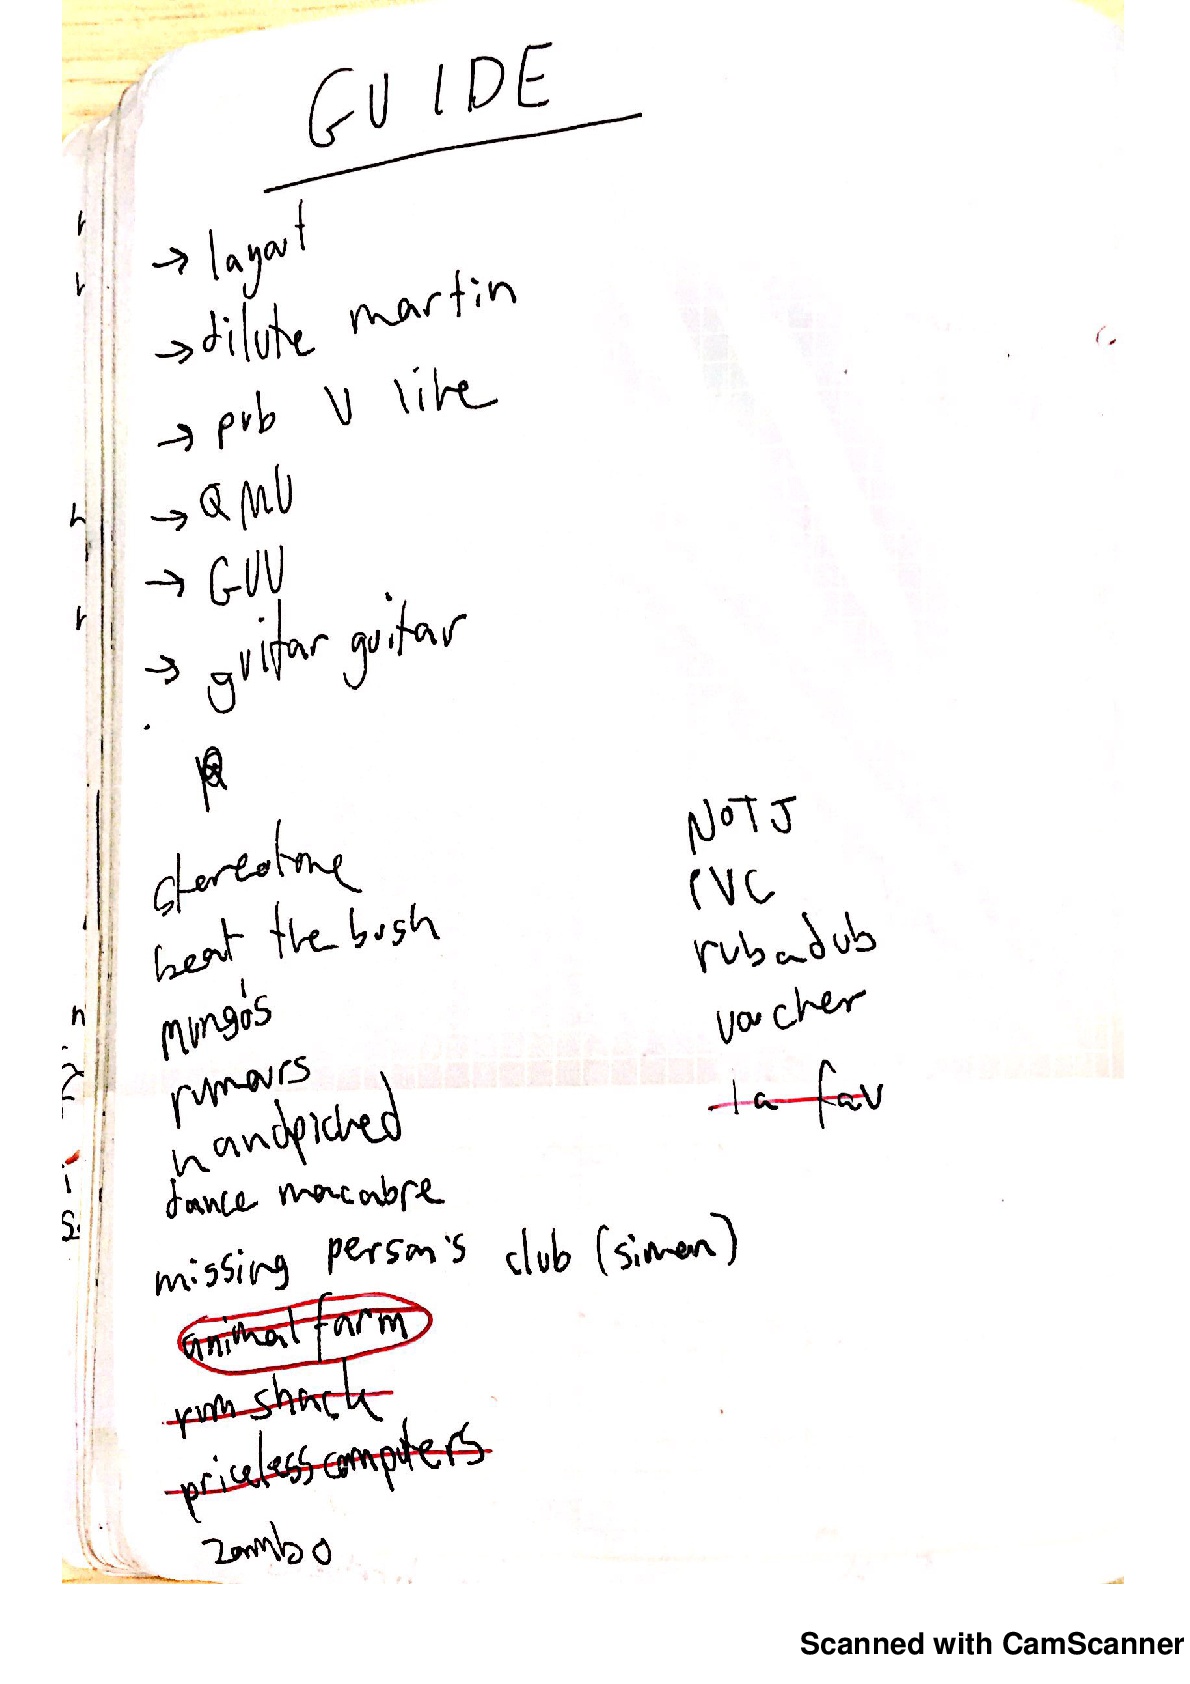 GUIDE
→ layout
→ dilute martin
→ pub v like
→ QMU
→ GUU
→ guitar guitar
stereotone
beat the bush
mungo's
rumours
handpicked
dance macabre
missing person's club (simon)
animal farm
rum shack
priceless computers
zambo
NOTJ
PVC
rubadub
voucher
la fav
Scanned with CamScanner